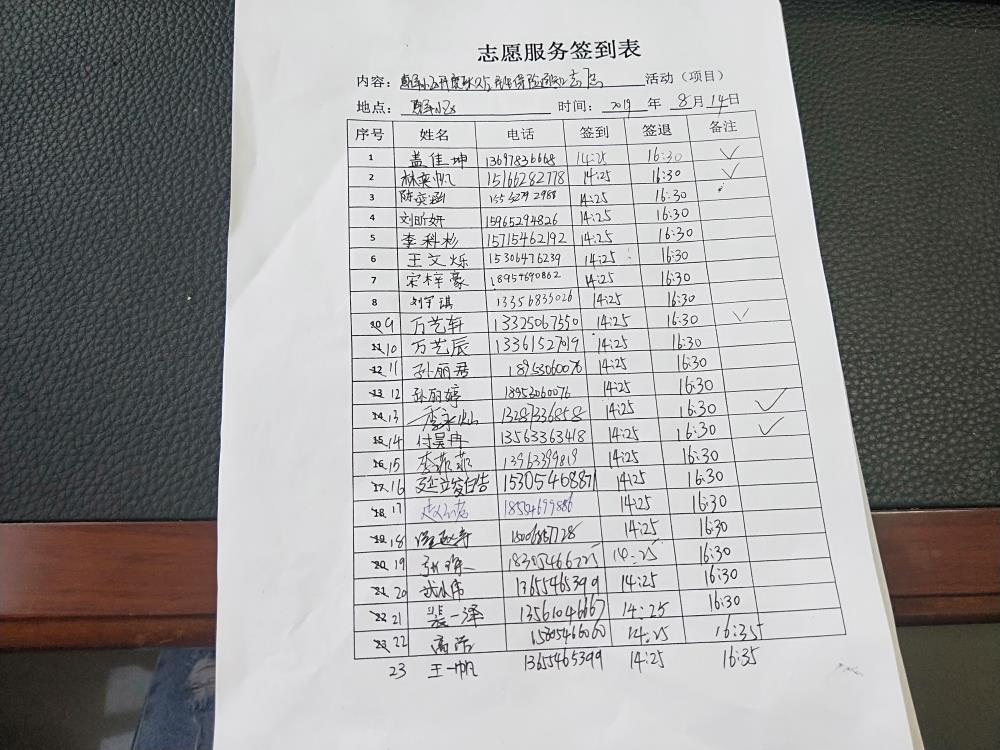 志愿服务签到表
内容: 活动（项目）
地点: 时间: 2019 年 8 月 14 日
序号 姓名 电话 签到 签退 备注
1 盖佳坤 13697836668 14:25 16:30 ✓
2 林奕帆 15166282778 14:25 16:30 ✓
3 陈奕涵 14:25 16:30
4 刘昕妍 15965294826 14:25 16:30
5 李科杉 15715462192 14:25 16:30
6 王文烁 15306476239 14:25 16:30
7 宋梓豪 18954690862 14:25 16:30
8 刘宇琪 13356833026 14:25 16:30
10 9 万艺轩 13325067550 14:25 16:30 ✓
11 10 万艺辰 13361527019 14:25 16:30
12 11 孙丽君 18953060076 14:25 16:30
13 12 孙丽婷 18953060076 14:25 16:30
14 13 13287336858 14:25 16:30 ✓
15 14 付昊冉 13563363418 14:25 16:30 ✓
16 15 李菲菲 13963399819 14:25 16:30
17 16 15305468871 14:25 16:30
18 17 18554699886 14:25 16:30
19 18 14:25 16:30
20 19 14:25 16:30
21 20 13655465399 14:25 16:30
22 21 裴一泽 13561046667 14:25 16:30
23 22 14:25 16:35
23 王一帆 13655465399 14:25 16:35